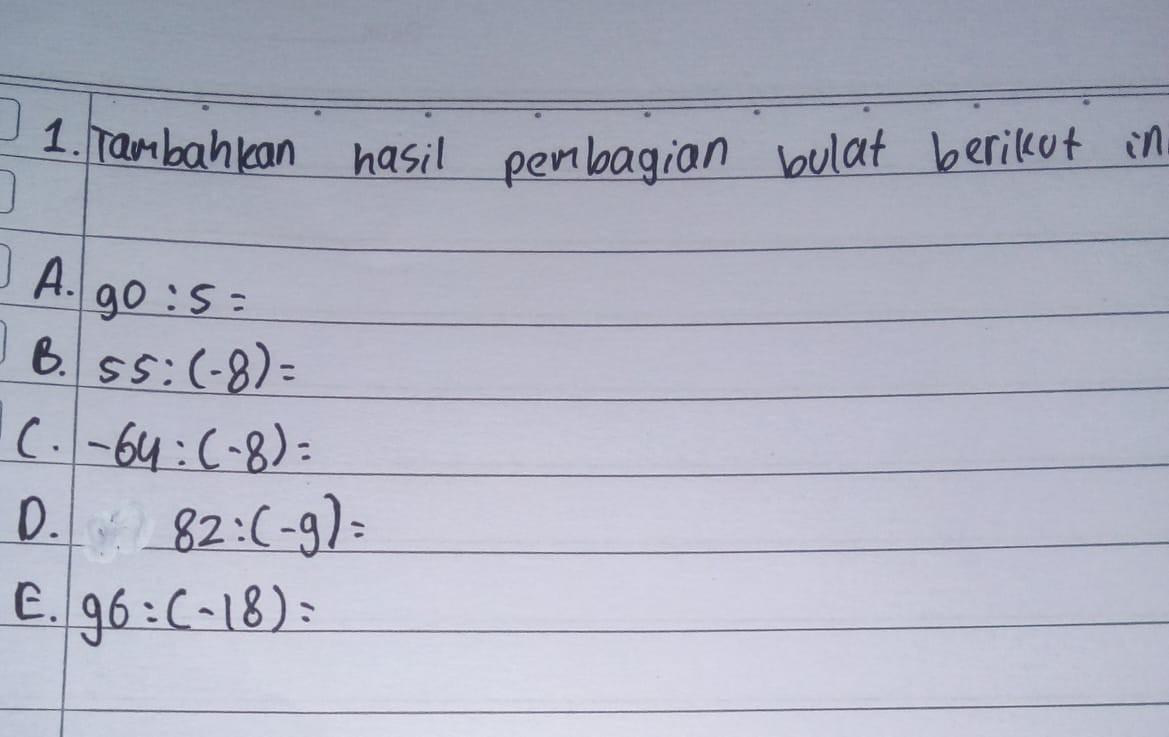 1. Tambahkan hasil pembagian bulat berikut in
A. 90 : 5 =
B. 55 : (-8) =
C. -64 : (-8) =
D. 82 : (-9) =
E. 96 : (-18) =